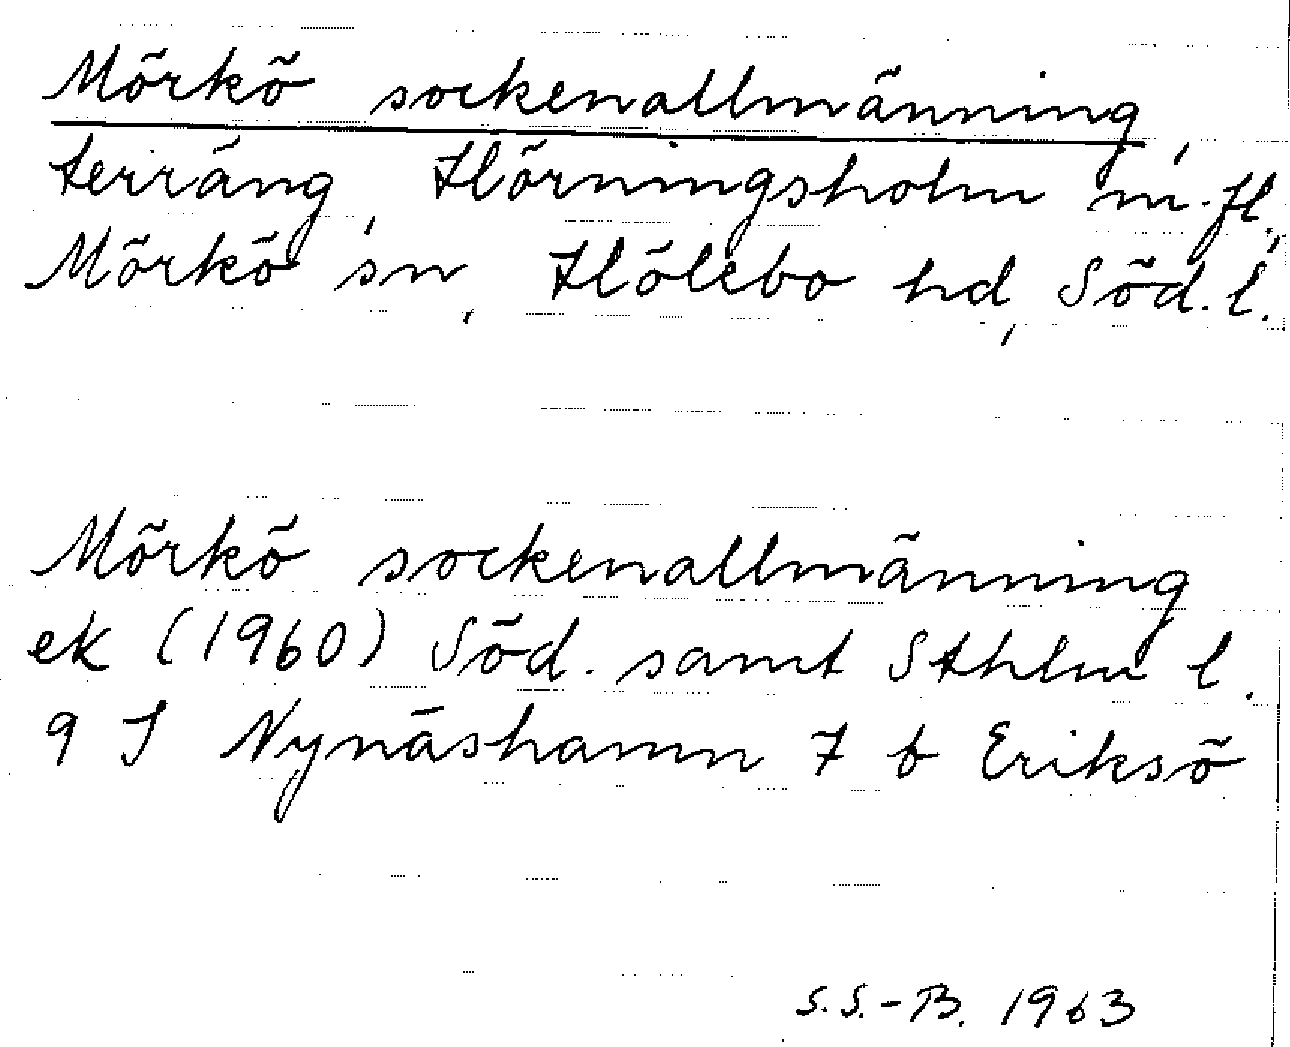 Mörkö sockenallmänning,
terräng, Hörningsholm m.fl.,
Mörkö sn, Hölebo hd, Söd. l.
Mörkö sockenallmänning
ek (1960) Söd. samt Sthlm l.
9 I Nynäshamn 7 b Eriksö
S.S.-B. 1963